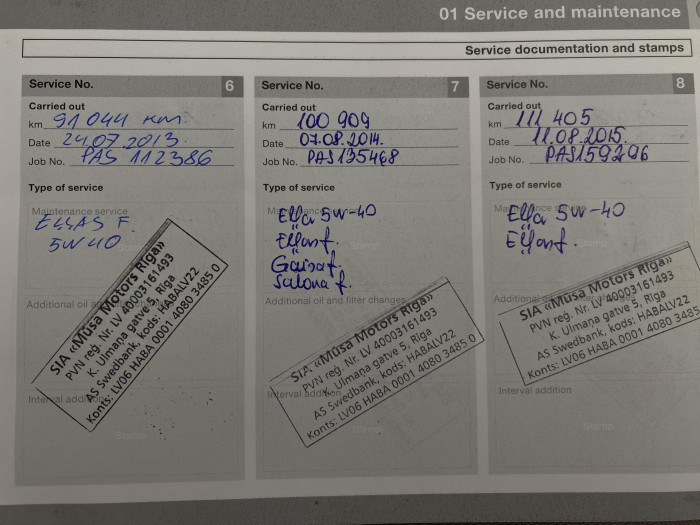 01 Service and maintenance
Service documentation and stamps
Service No. 6
Carried out
km 91 044 km
Date 24.07.2013.
Job No. PAS 112386
Type of service
Maintenance service
EĻĻAS F.
5W40
Additional oil a
SIA «Mūsa Motors Rīga»
PVN reģ. Nr. LV 40003161493
K. Ulmaņa gatve 5, Rīga
AS Swedbank, kods: HABALV22
Konts: LV06 HABA 0001 4080 3485 0
Interval addition
Stamp
Service No. 7
Carried out
km 100 909
Date 07.08.2014.
Job No. PAS135468
Type of service
Maintenance service
Eļļa 5w-40
Eļļas f.
Stamp
Gaisa f.
Salona f.
Additional oil and filter changes
SIA «Mūsa Motors Rīga»
PVN reģ. Nr. LV 40003161493
K. Ulmaņa gatve 5, Rīga
AS Swedbank, kods: HABALV22
Konts: LV06 HABA 0001 4080 3485 0
Interval addition
Stamp
Service No. 8
Carried out
km 111 405
Date 11.08.2015.
Job No. PAS159296
Type of service
Maintenance service
Eļļa 5w-40
Eļļas f.
Additional oil
SIA «Mūsa Motors Rīga»
PVN reģ. Nr. LV 40003161493
K. Ulmaņa gatve 5, Rīga
AS Swedbank, kods: HABALV22
Konts: LV06 HABA 0001 4080 3485
Interval addition
Stamp